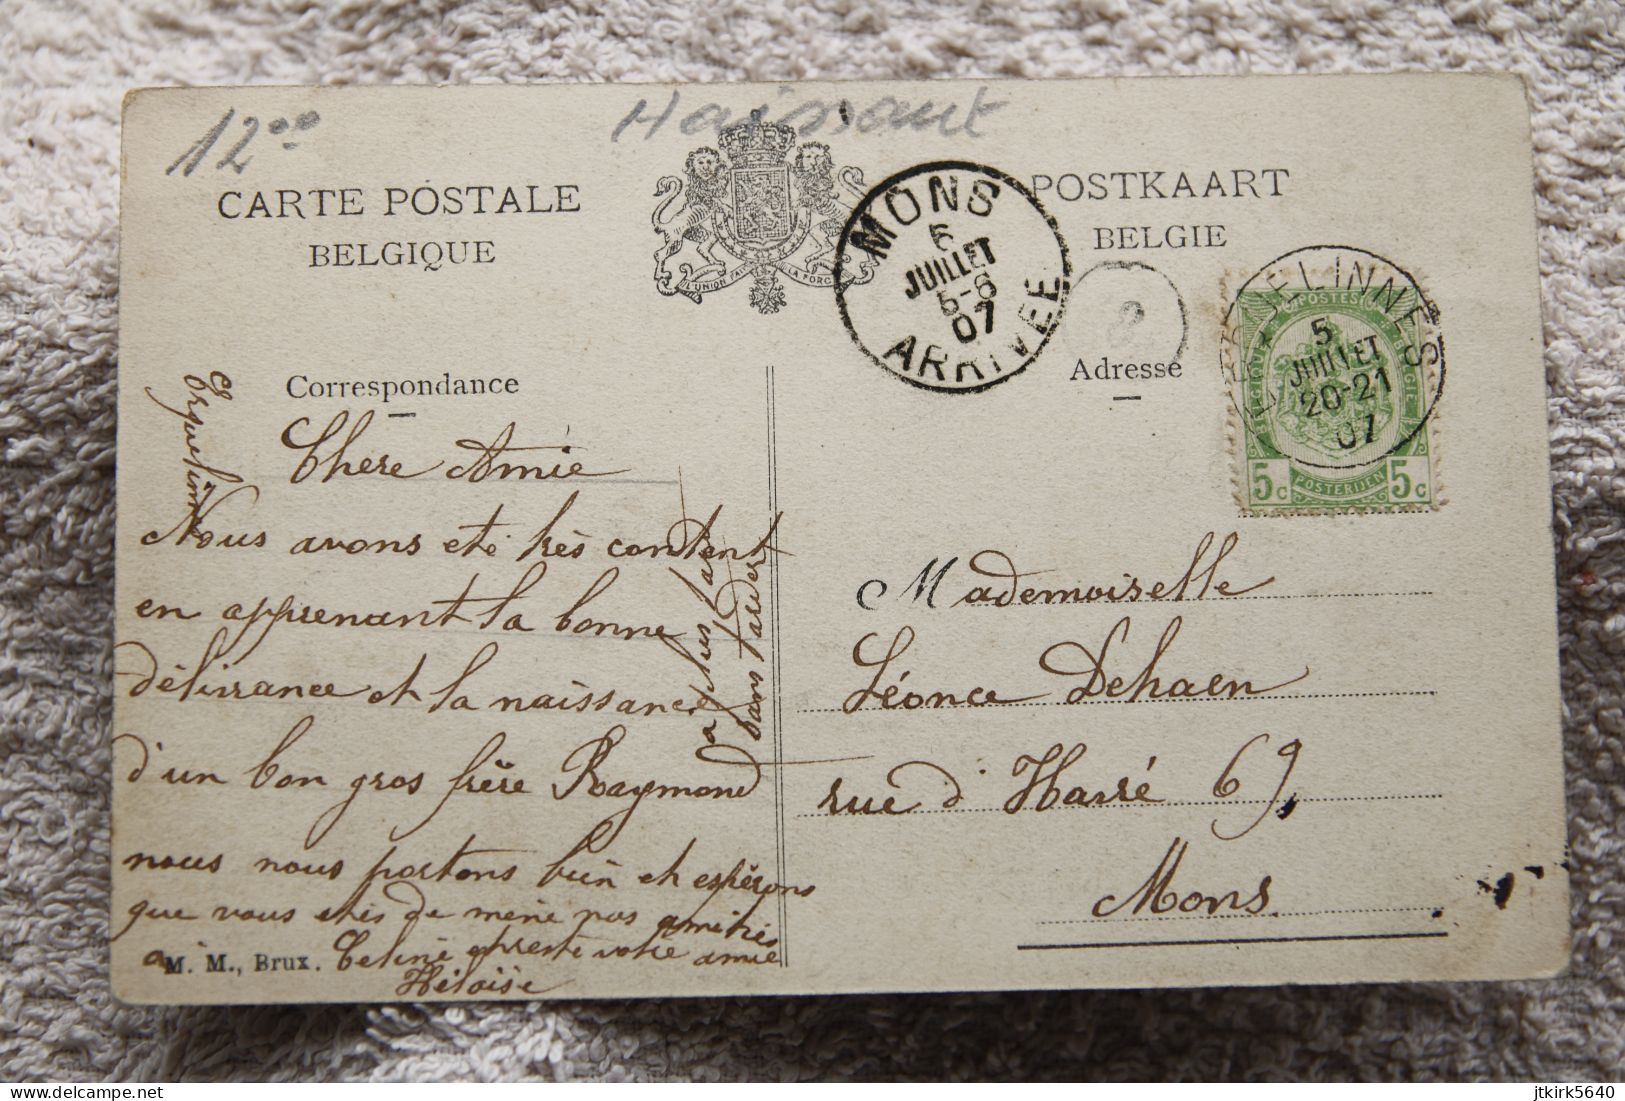 12 00
Haissaut
CARTE POSTALE
BELGIQUE
L'UNION FAIT LA FORCE
POSTKAART
BELGIE
MONS
6
JUILLET
5-6
07
ARRIVÉE
2
ERQUELINNES
5
JUILLET
20-21
07
POSTES
BELGIQUE
BELGIË
5c POSTERIJEN 5c
Correspondance
Adresse
Erquelinnes
Chere Amie
Nous avons eté très content
en apprenant la bonne
délivrance et la naissance
d'un bon gros frère Raymond
nous nous portons bien et espérons
que vous etes de mème nos amitiés
a Celine apresent votre amie
Héloïse
a plus tard
Mademoiselle
Léonce Dehaen
rue d'Havré 69,
Mons.
M. M., Brux.
jtkirk5640